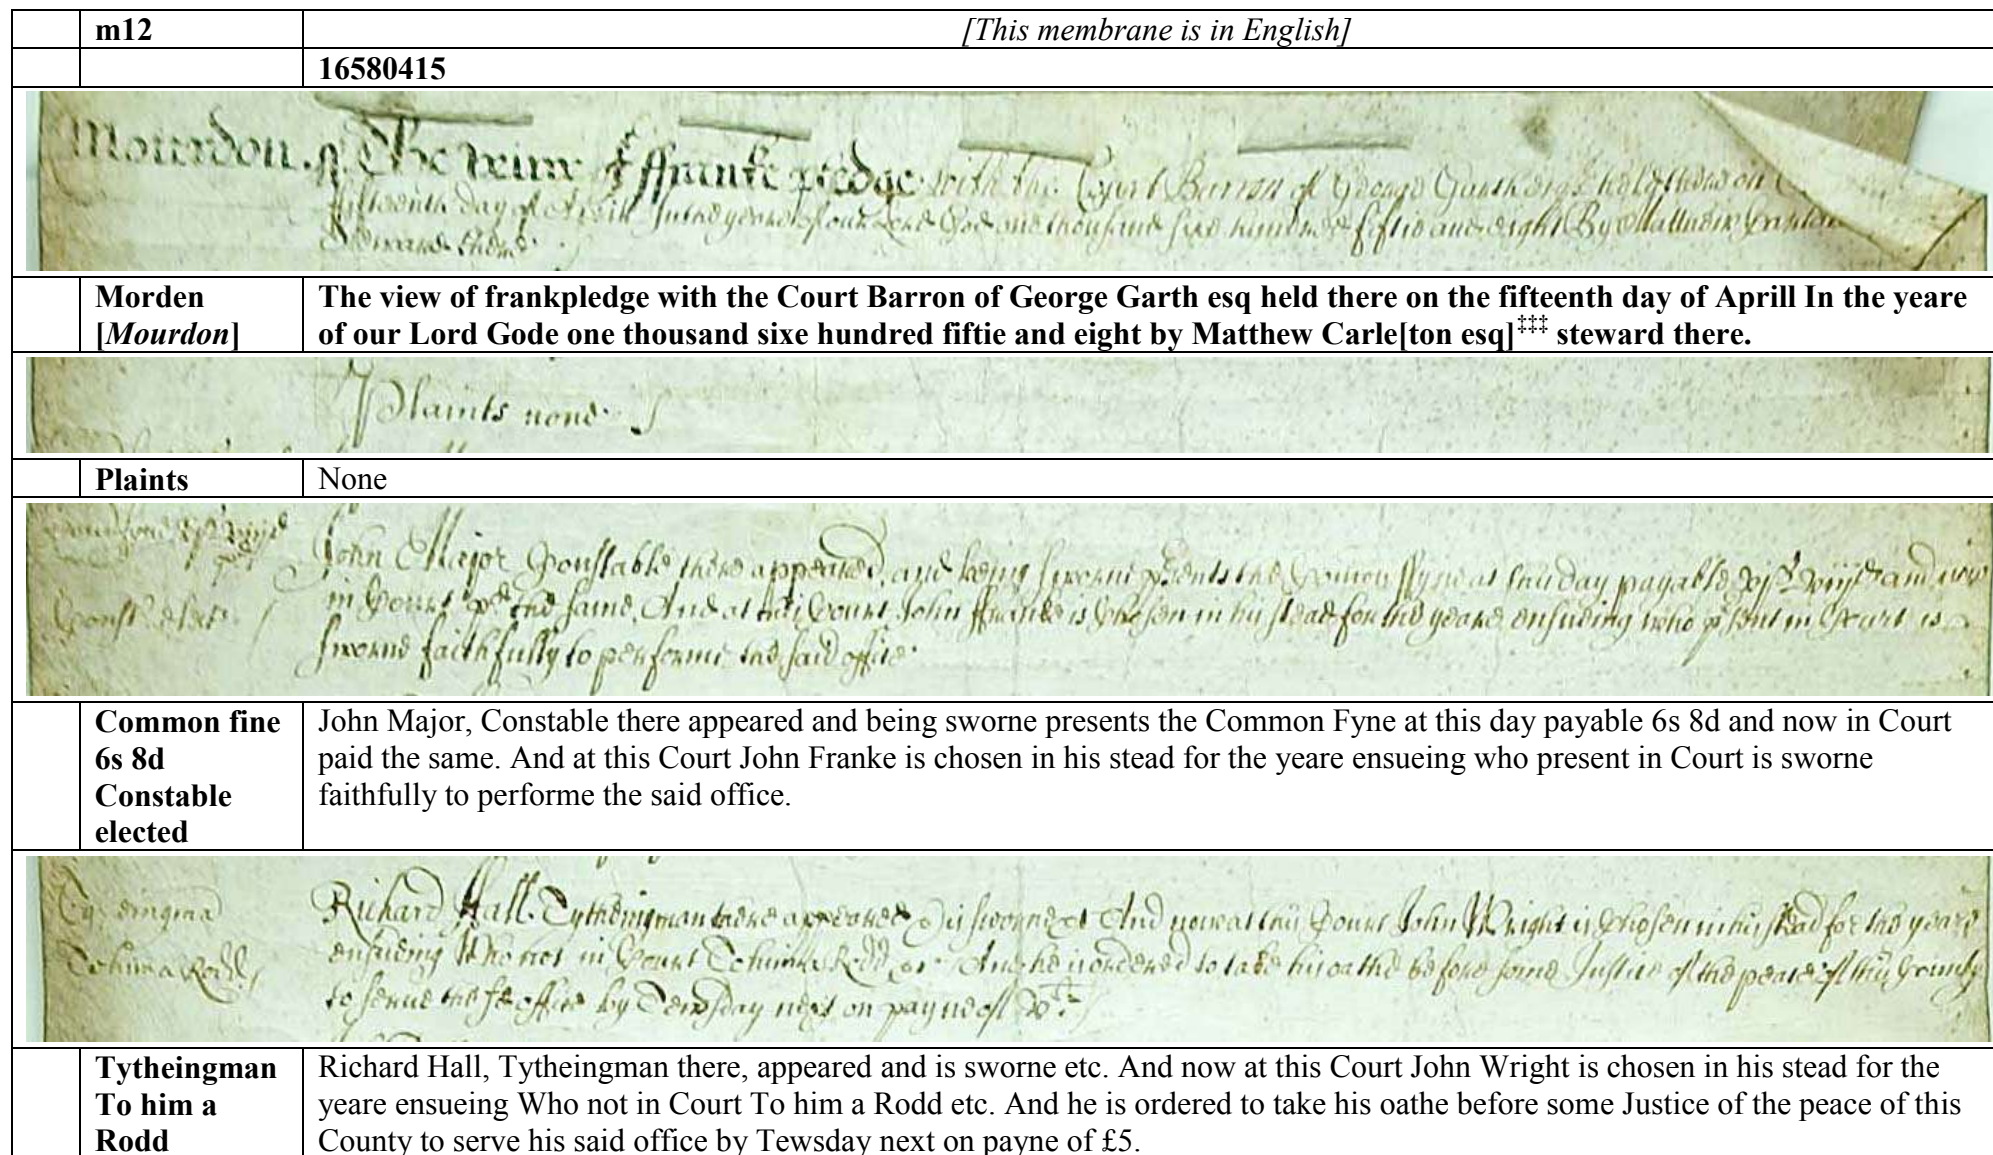 m12 [This membrane is in English]
16580415
Mourdon. The view of ffranke pledge with the Court Barron of George Garth held there on
fifteenth day of Aprill In the yeare of our Lord God one thousand sixe hundred fiftie and eight By Matthew
Steward there.
Morden The view of frankpledge with the Court Barron of George Garth esq held there on the fifteenth day of Aprill In the yeare
[Mourdon] of our Lord Gode one thousand sixe hundred fiftie and eight by Matthew Carle[ton esq]‡‡‡ steward there.
Plaints none.
Plaints None
John Major Constable there appeared, and being sworne the Fyne at this day payable and now
Const. elect. in Court the same. And at this Court John ffranke is Chosen in his stead for the yeare ensueing who in Court is
sworne faithfully to performe the said office.
Common fine John Major, Constable there appeared and being sworne presents the Common Fyne at this day payable 6s 8d and now in Court
6s 8d paid the same. And at this Court John Franke is chosen in his stead for the yeare ensueing who present in Court is sworne
Constable faithfully to performe the said office.
elected
Richard Hall Tytheingman there appeared is sworne And now at this Court John Wright is Chosen in his stead for the yeare
To him a Rodd ensueing Who not in Court To him a Rodd And he is ordered to take his oathe before some Justice of the peace of this County
to serve office by Tewsday next on payne of
Tytheingman Richard Hall, Tytheingman there, appeared and is sworne etc. And now at this Court John Wright is chosen in his stead for the
To him a yeare ensueing Who not in Court To him a Rodd etc. And he is ordered to take his oathe before some Justice of the peace of this
Rodd County to serve his said office by Tewsday next on payne of £5.